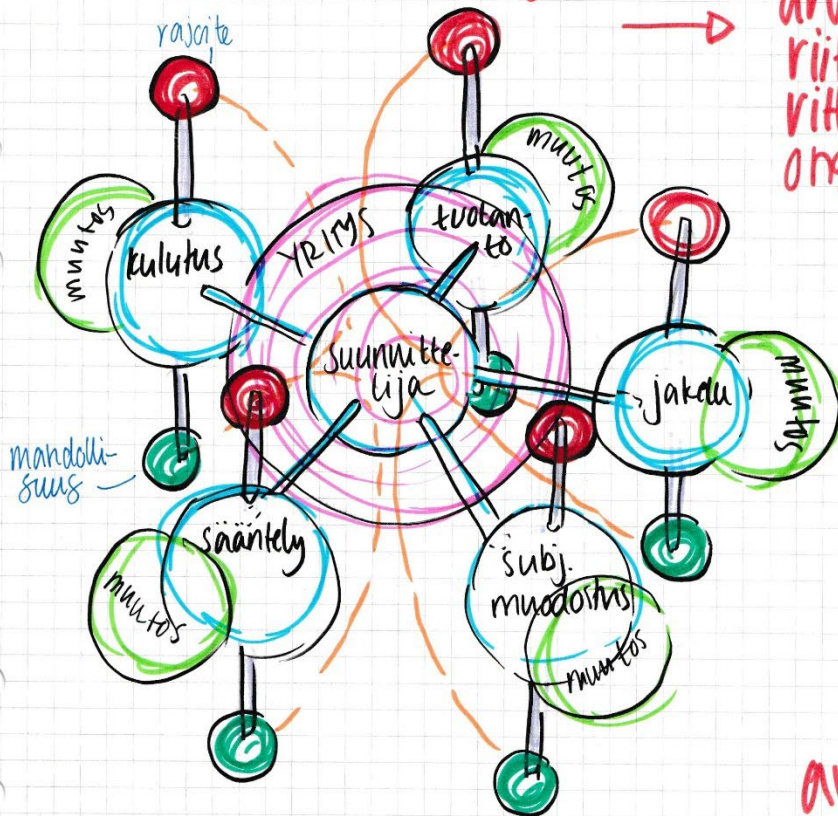 rajoite
muutos
kulutus
YRITYS
tuotan-
to
muutos
suunnitte-
lija
jakelu
muutos
mahdolli-
suus
sääntely
muutos
subj.
muodostus
muutos